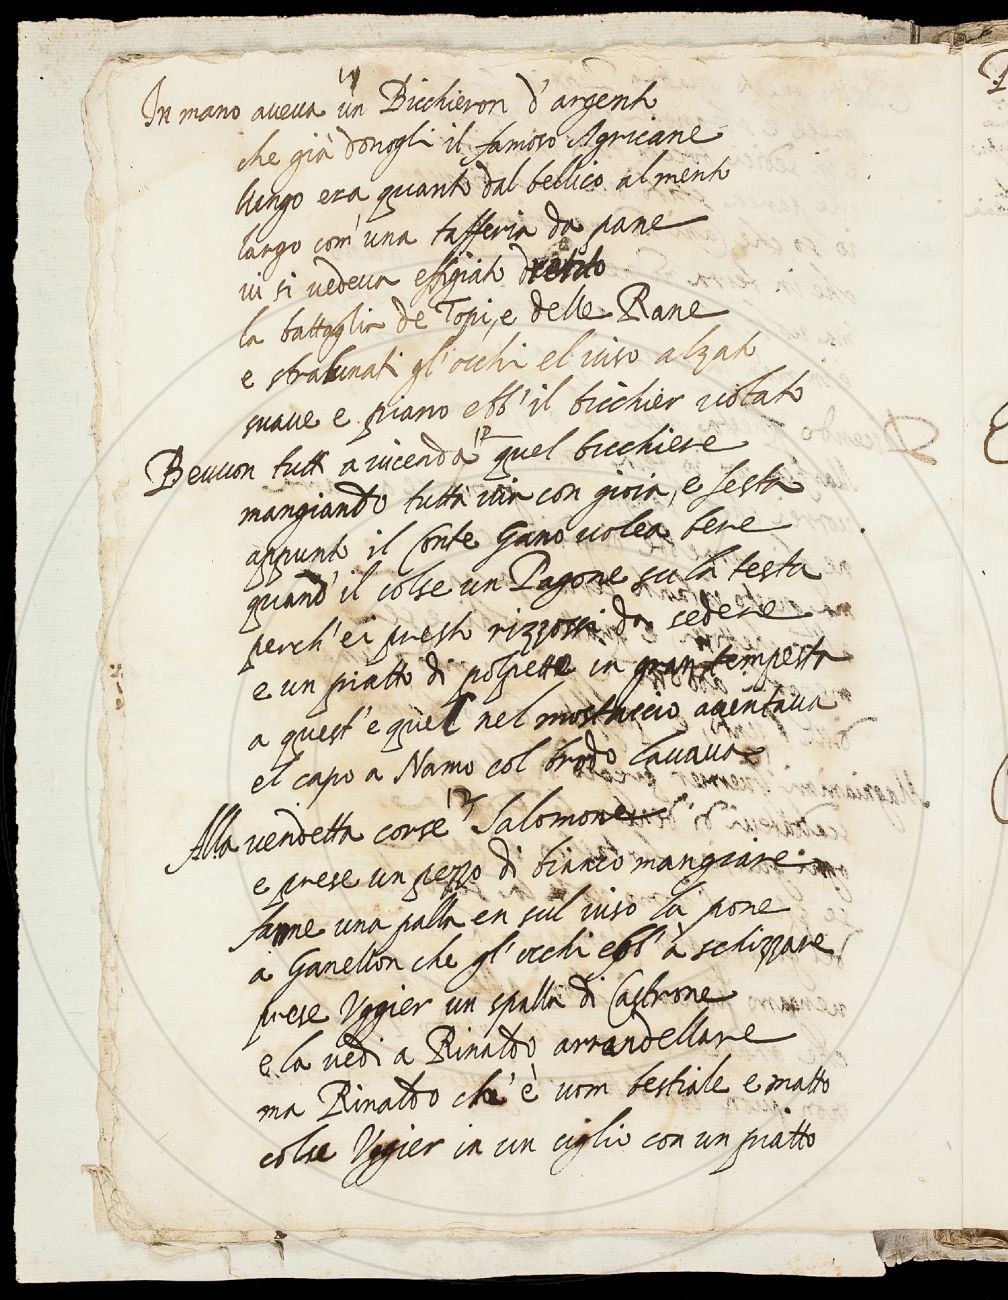 In mano aveva un Bicchieron d'argento
che già donogli il famoso Agricane
lungo era quanto dal bellico al mento
largo com' una tafferia da pane
ui si vedeua effigiato drento
la battaglia de Topi, e delle Rane
e stralunati gl'occhi el uiso alzato
suaue e piano ebb'il bicchier uotato
Beuuon tutti a uicenda quel bicchiere
mangiando tutta uia con gioia, e festa
appunto il Conte Gano uolea bere
quand'il colse un Pagone su la testa
perch'ei presto rizzossi da sedere
e un piatto di polpette in gran tempesta
a quest'e quel nel mostaccio auentaua
el capo a Namo col brodo lauaua
Alla uendetta corse Salomone
e prese un pezzo di bianco mangiare
fanne una palla en sul uiso la pone
a Ganellon che gl'occhi ebb'à schizzare
prese Uggier un spalla di Castrone
e la uedi a Rinaldo arrandellare
ma Rinaldo ch'è uom bestiale e matto
colse Uggier in un ciglio con un piatto